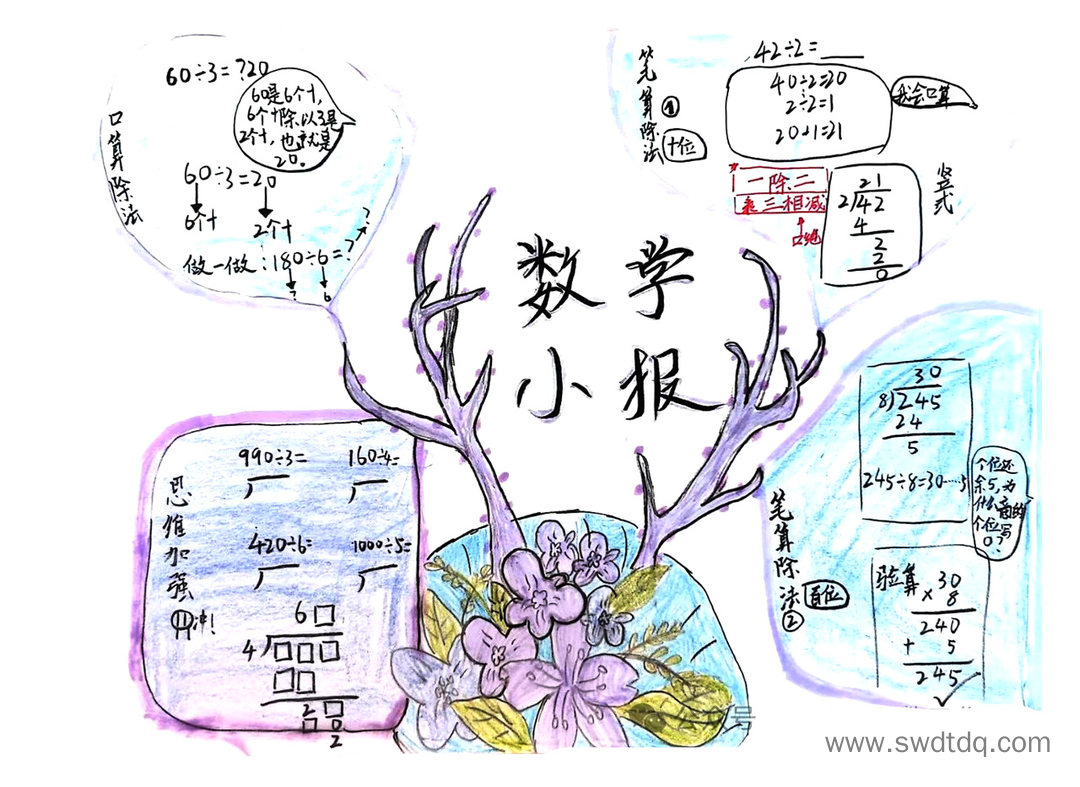 数学
小报
口算除法
60÷3=?20
60是6个十,
6个十除以3是
2个十,也就是
20。
60÷3=20
6个十
2个十
做一做:180÷6=?
?
?
6
笔算除法①
十位
42÷2=
40÷2=20
2÷2=1
20+1=21
我会口算
一除二
乘三相减
竖式
21
2)42
4
2
2
0
思维加强
冲!
990÷3=
160÷4=
420÷6=
1000÷5=
6□
4)□□□
□□
2□
□0
2
笔算除法②
百位
30
8)245
24
5
245÷8=30……5
个位还
余5,为
什么商的
个位写
0?
验算
30
×8
240
+5
245
号
www.swdtdq.com